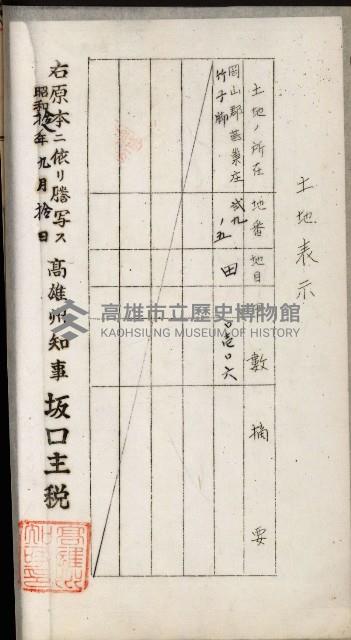 土地表示
土地ノ所在
地番
地目
甲數
摘要
岡山郡燕巢庄
竹子腳
貳九
ノ五
田
右原本ニ依リ謄写ス
昭和拾八年九月拾日
高雄州知事 坂口主税
高雄市立歷史博物館
KAOHSIUNG MUSEUM OF HISTORY